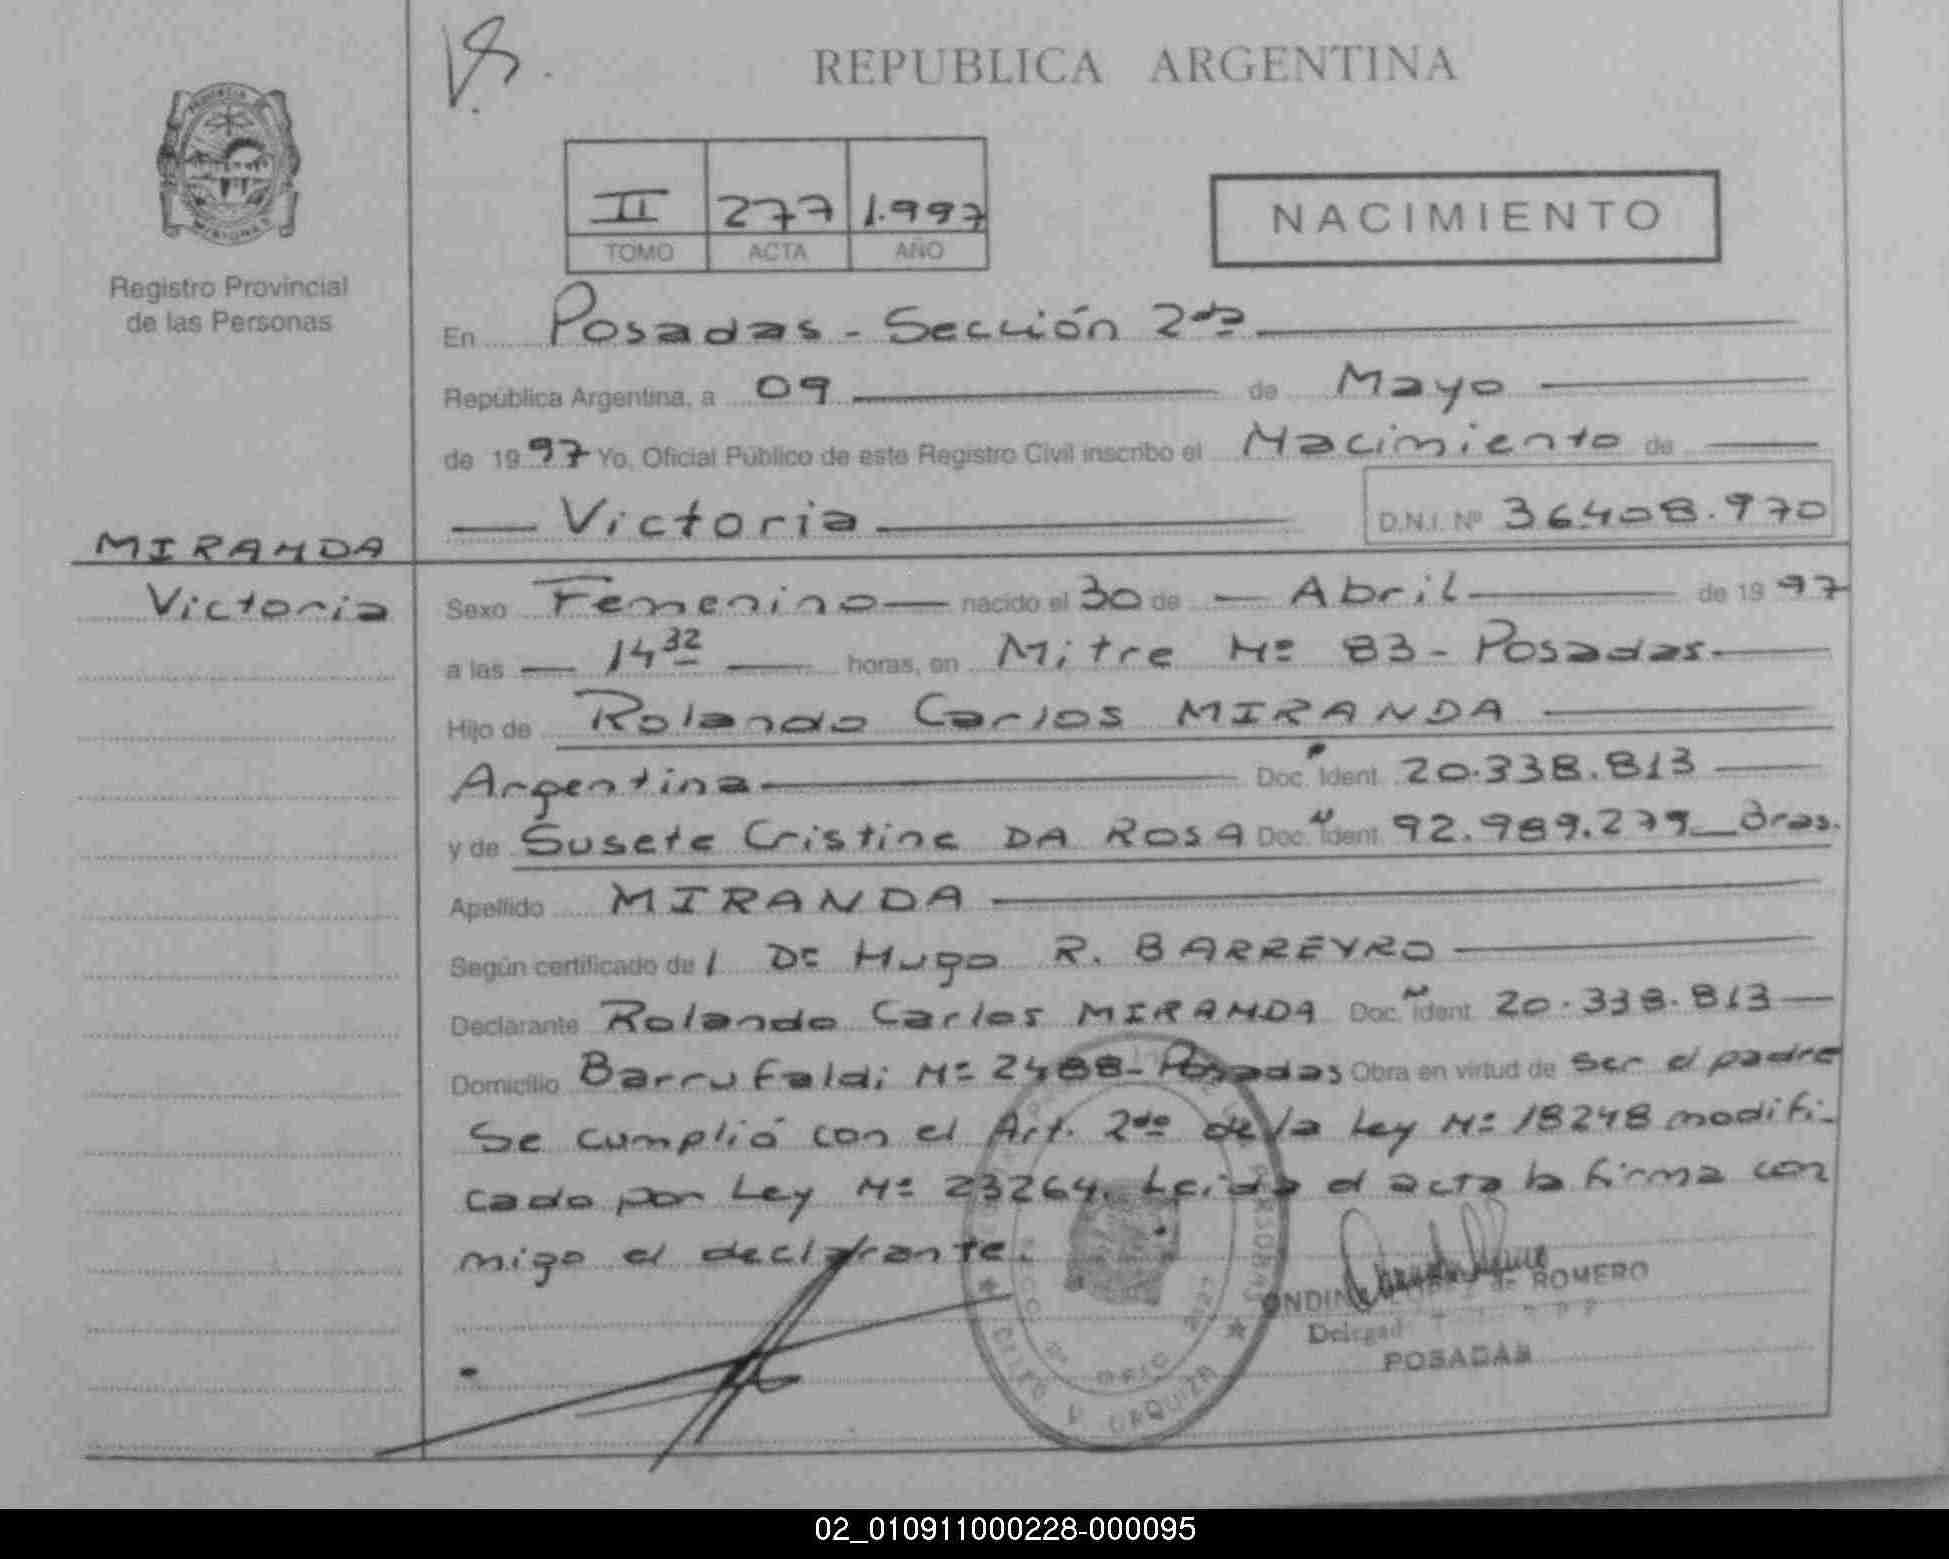 REPUBLICA ARGENTINA
II 277 1.997
TOMO ACTA AÑO
NACIMIENTO
PROVINCIA
MISIONES
Registro Provincial
de las Personas
En Posadas - Sección 2da
República Argentina, a 09 de Mayo
de 1997 Yo, Oficial Público de este Registro Civil inscribo el Nacimiento de
Victoria D.N.I. Nº 36.408.970
MIRANDA
Victoria
Sexo Femenino nacido el 30 de Abril de 1997
a las 14 32 horas, en Mitre Nº 83 - Posadas.
Hijo de Rolando Carlos MIRANDA
Argentina Doc. Ident. 20.338.813
y de Susete Cristine DA ROSA Doc. Ident. 92.989.279 Bras.
Apellido MIRANDA
Según certificado de / Dr Hugo R. BARREYRO
Declarante Rolando Carlos MIRANDA Doc. Ident. 20.338.813
Domicilio Barrufaldi Nº 2488 - Posadas Obra en virtud de ser el padre
Se cumplió con el Art. 2do de la Ley Nº 18248 modifi-
cado por Ley Nº 23264. Leida el acta la firma con
migo el declarante.
de ROMERO
POSADAS
URQUIZA
02_010911000228-000095